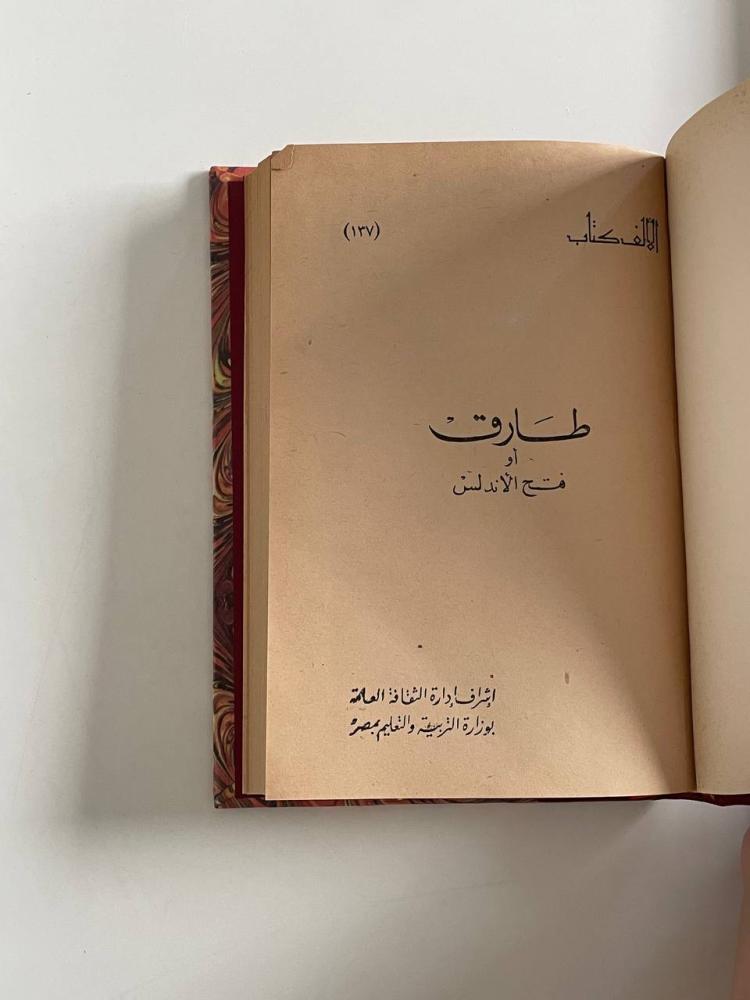 الألف كتاب
(١٣٧)
طَارق
أو
فتح الأندلس
إشراف إدارة الثقافة العامة
بوزارة التربية والتعليم بمصر